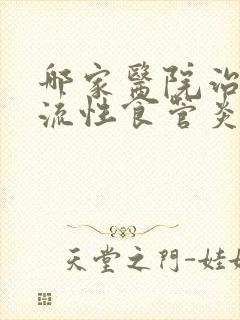 那家醫院治
流性食管炎
天堂之門-娃娃